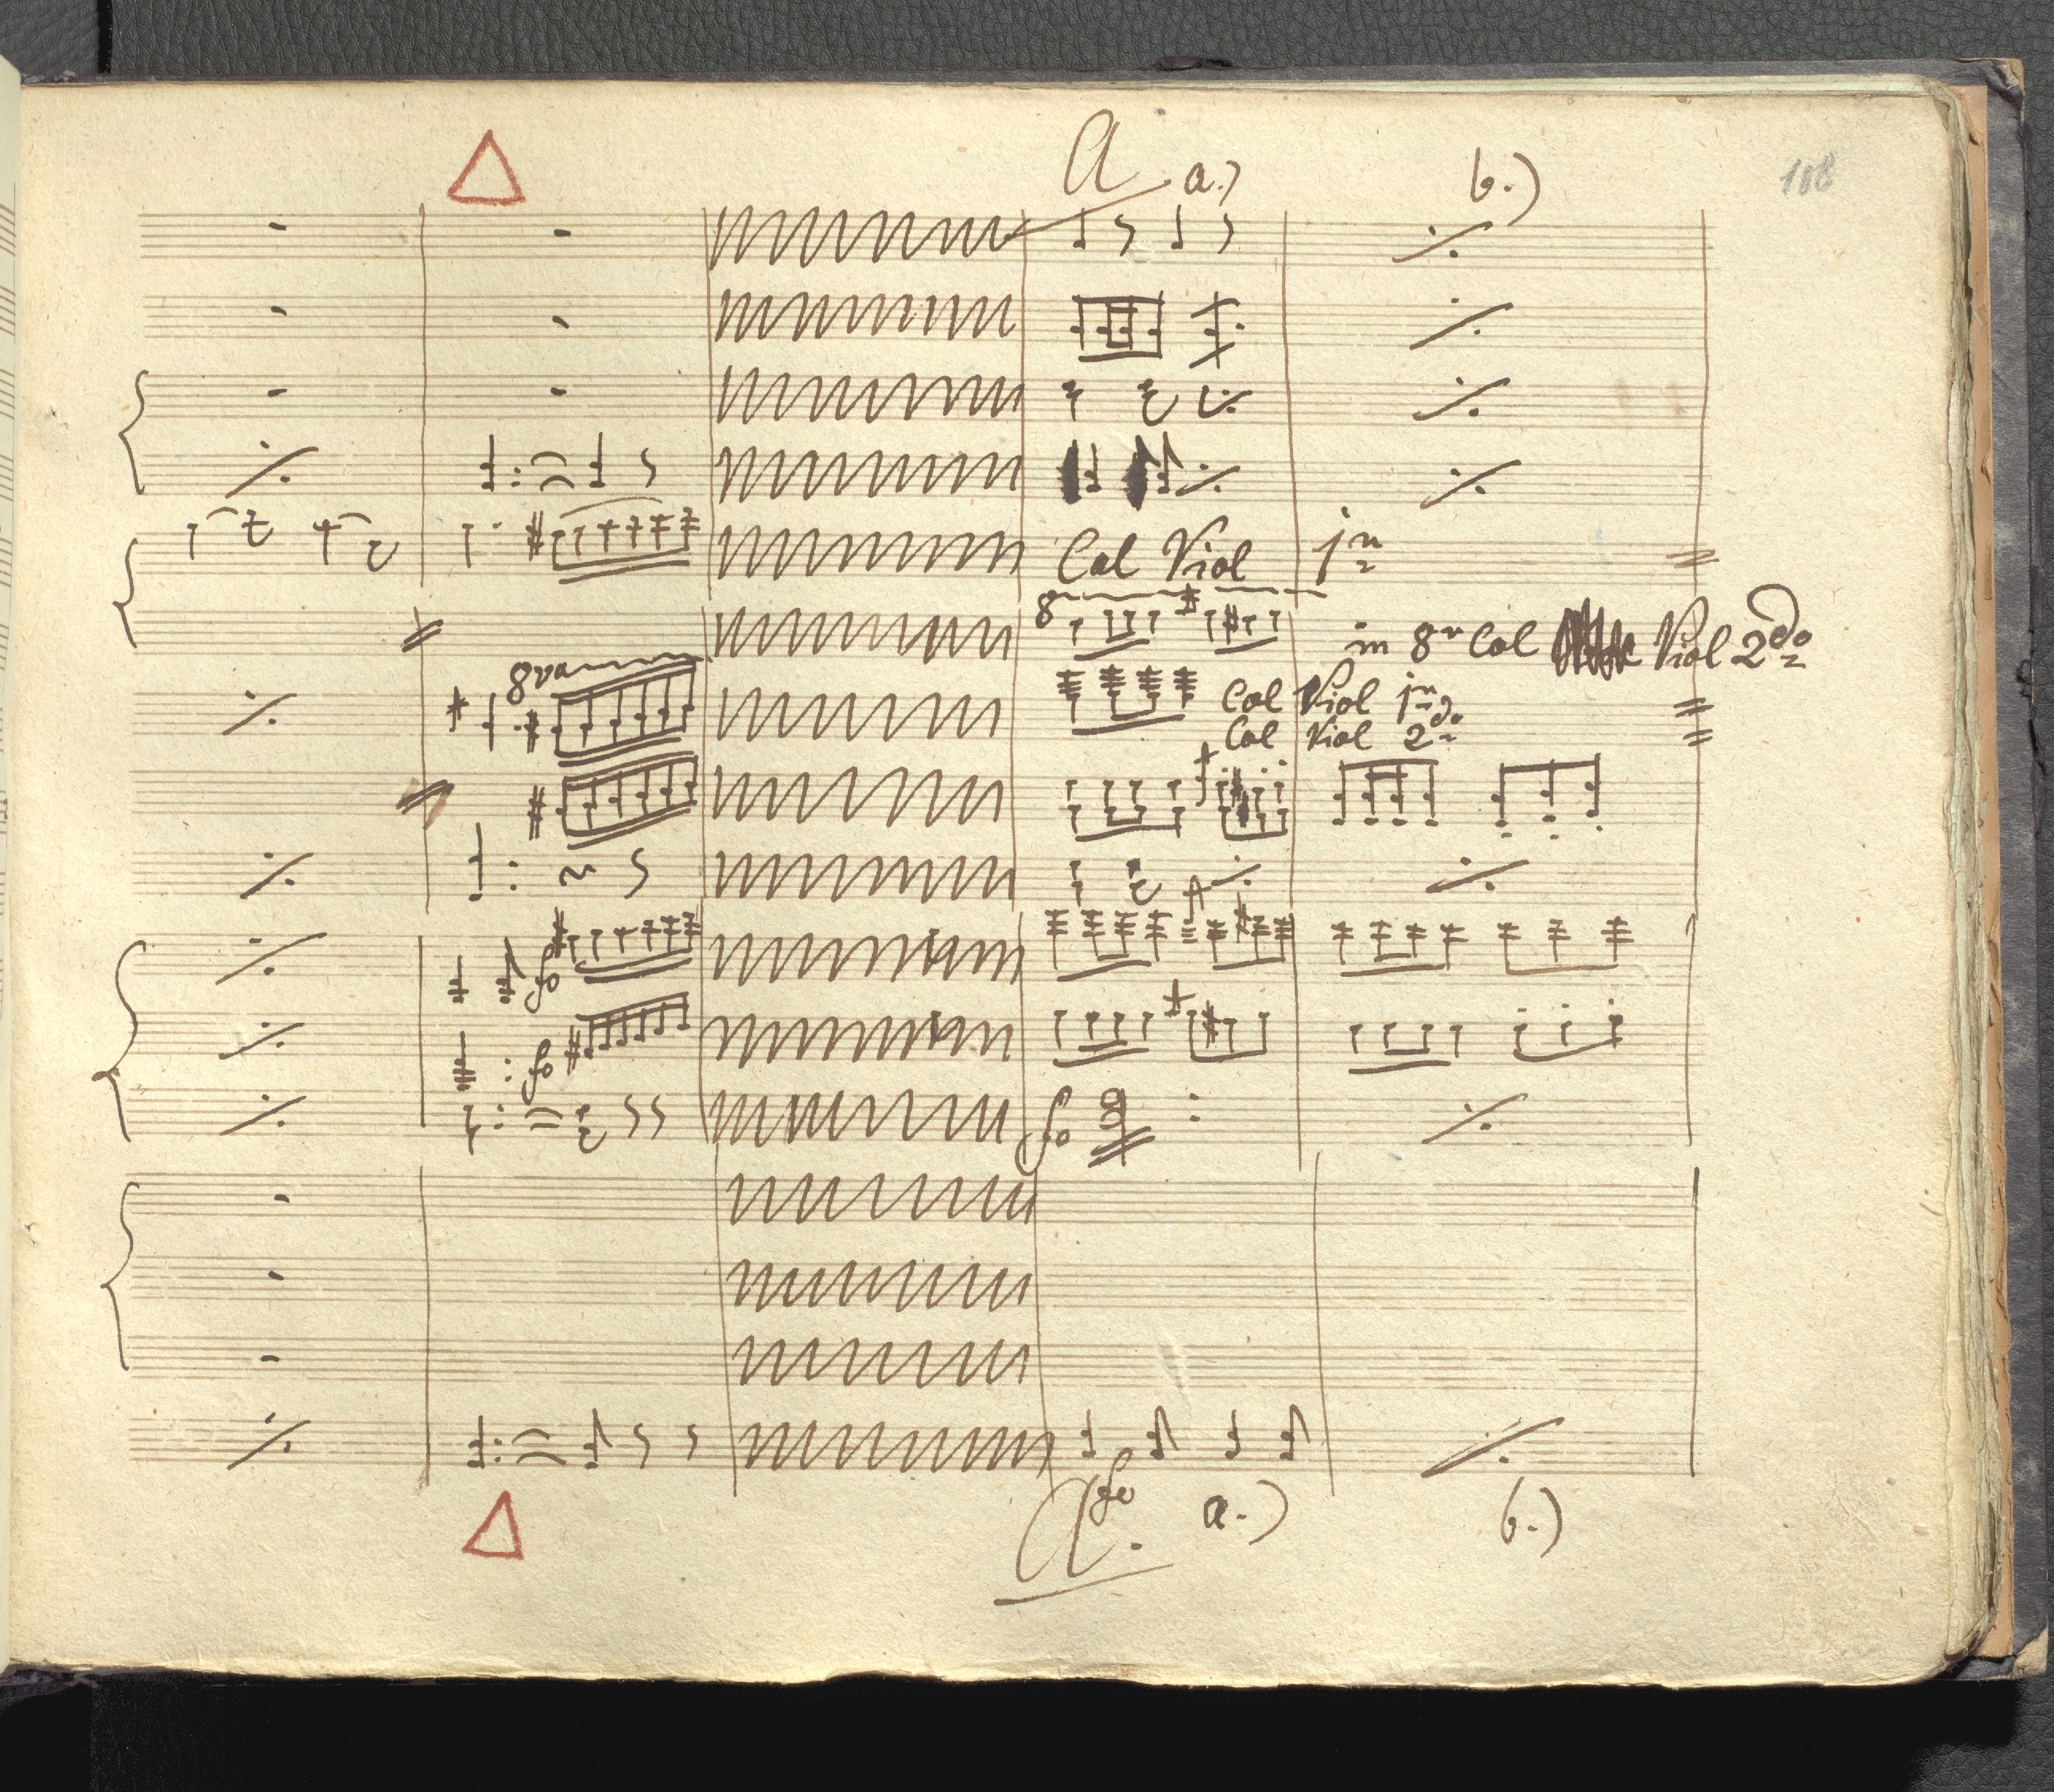 A a.) b.) 108
Col Viol 1mo
8
in 8va Col Viol 2do
8va
Col Viol 1mo
Col Viol 2do
fo
fo
fo
fo
A. a.) b.)